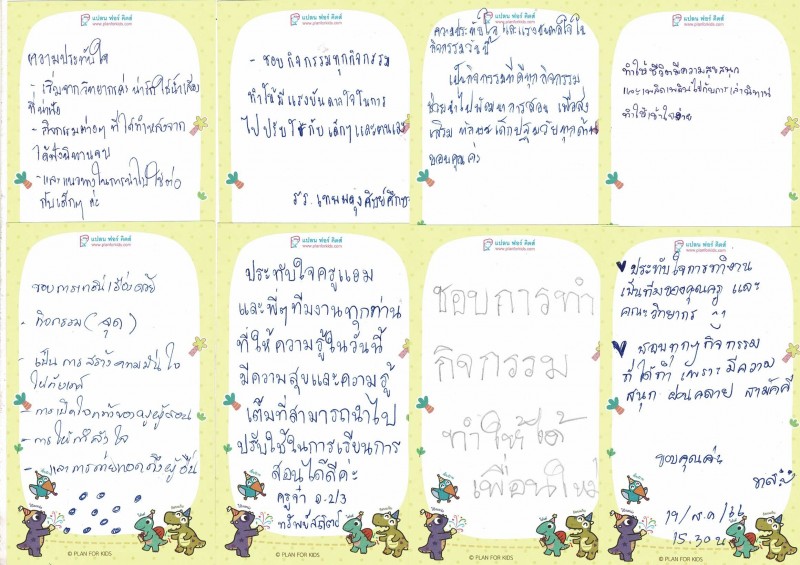 แปลน ฟอร์ คิดส์
www.planforkids.com
ความประทับใจ
- เริ่มจากวิทยากรค่ะ น่ารัก ใช้น้ำเสียง
ที่น่าฟัง
- กิจกรรมต่างๆ ที่ได้ทำหลังจาก
ได้ฟังนิทานจบ
- และแนวทางในการนำไปใช้ต่อ
กับเด็กๆ ค่ะ
แปลน ฟอร์ คิดส์
www.planforkids.com
- ชอบกิจกรรมทุกกิจกรรม
ทำให้มีแรงบันดาลใจในการ
ไปปรับใช้กับเด็กๆ และตนเอง
รร. เทพผดุง
แปลน ฟอร์ คิดส์
www.planforkids.com
ความประทับใจ และแรงบันดาลใจใน
กิจกรรมวันนี้
เป็นกิจกรรมที่ดีทุกกิจกรรม
ช่วยนำไปพัฒนาการสอน เพื่อส่ง
เสริมทักษะเด็กปฐมวัยทุกด้าน
ขอบคุณค่ะ
แปลน ฟอร์ คิดส์
www.planforkids.com
ทำให้ชีวิตมีความสุขสนุก
และเพลิดเพลินไปกับการเล่านิทาน
ทำให้เข้าใจง่าย
แปลน ฟอร์ คิดส์
www.planforkids.com
ชอบการ
- กิจกรรม (จุด)
- เป็นการสร้างความมั่นใจ
ให้กับ
- การเปิดใจ ของผู้สอน
- การให้กำลังใจ
- และการถ่ายทอดถึงผู้อื่น
© PLAN FOR KIDS
แปลน ฟอร์ คิดส์
www.planforkids.com
ประทับใจครูแอม
และพี่ๆทีมงานทุกท่าน
ที่ให้ความรู้ในวันนี้
มีความสุขและความรู้
เต็มที่สามารถนำไป
ปรับใช้ในการเรียนการ
สอนได้ดีค่ะ
ครูจ๋า อ.2/3
ทรัพย์สถิตย์
© PLAN FOR KIDS
แปลน ฟอร์ คิดส์
www.planforkids.com
ชอบการทำ
กิจกรรม
ทำให้ได้
เพื่อนใหม่
© PLAN FOR KIDS
แปลน ฟอร์ คิดส์
www.planforkids.com
ประทับใจการทำงาน
เป็นทีมของคุณครู และ
คณะวิทยากร ^^
ชอบทุกๆกิจกรรม
ที่ได้ทำ เพราะมีความ
สนุก ผ่อนคลาย สามัคคี
ขอบคุณค่ะ
19/ส.ค/66
15.30 น
© PLAN FOR KIDS